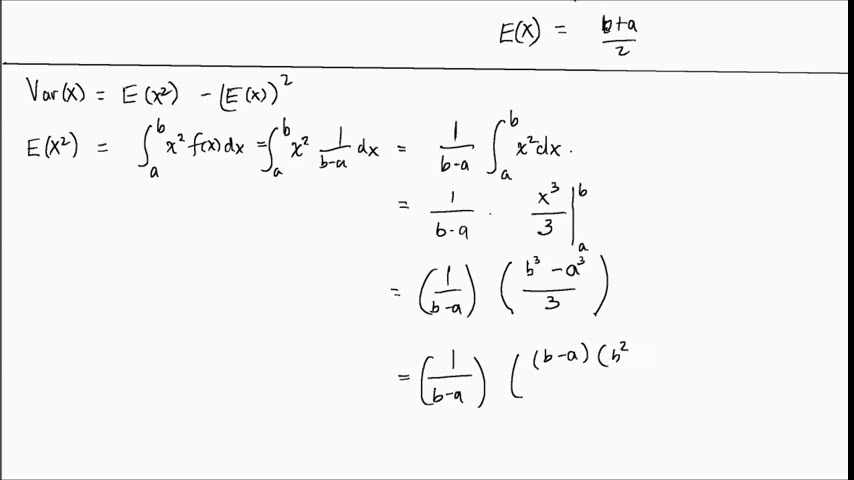 E(X) = b+a/2
Var(X) = E(X²) - (E(X))²
E(X²) = ∫ₐᵇ x² f(x)dx = ∫ₐᵇ x² 1/(b-a) dx = 1/(b-a) ∫ₐᵇ x² dx.
= 1/(b-a) · x³/3 |ₐᵇ
= (1/(b-a)) ((b³ - a³)/3)
= (1/(b-a)) ( (b-a) (b²